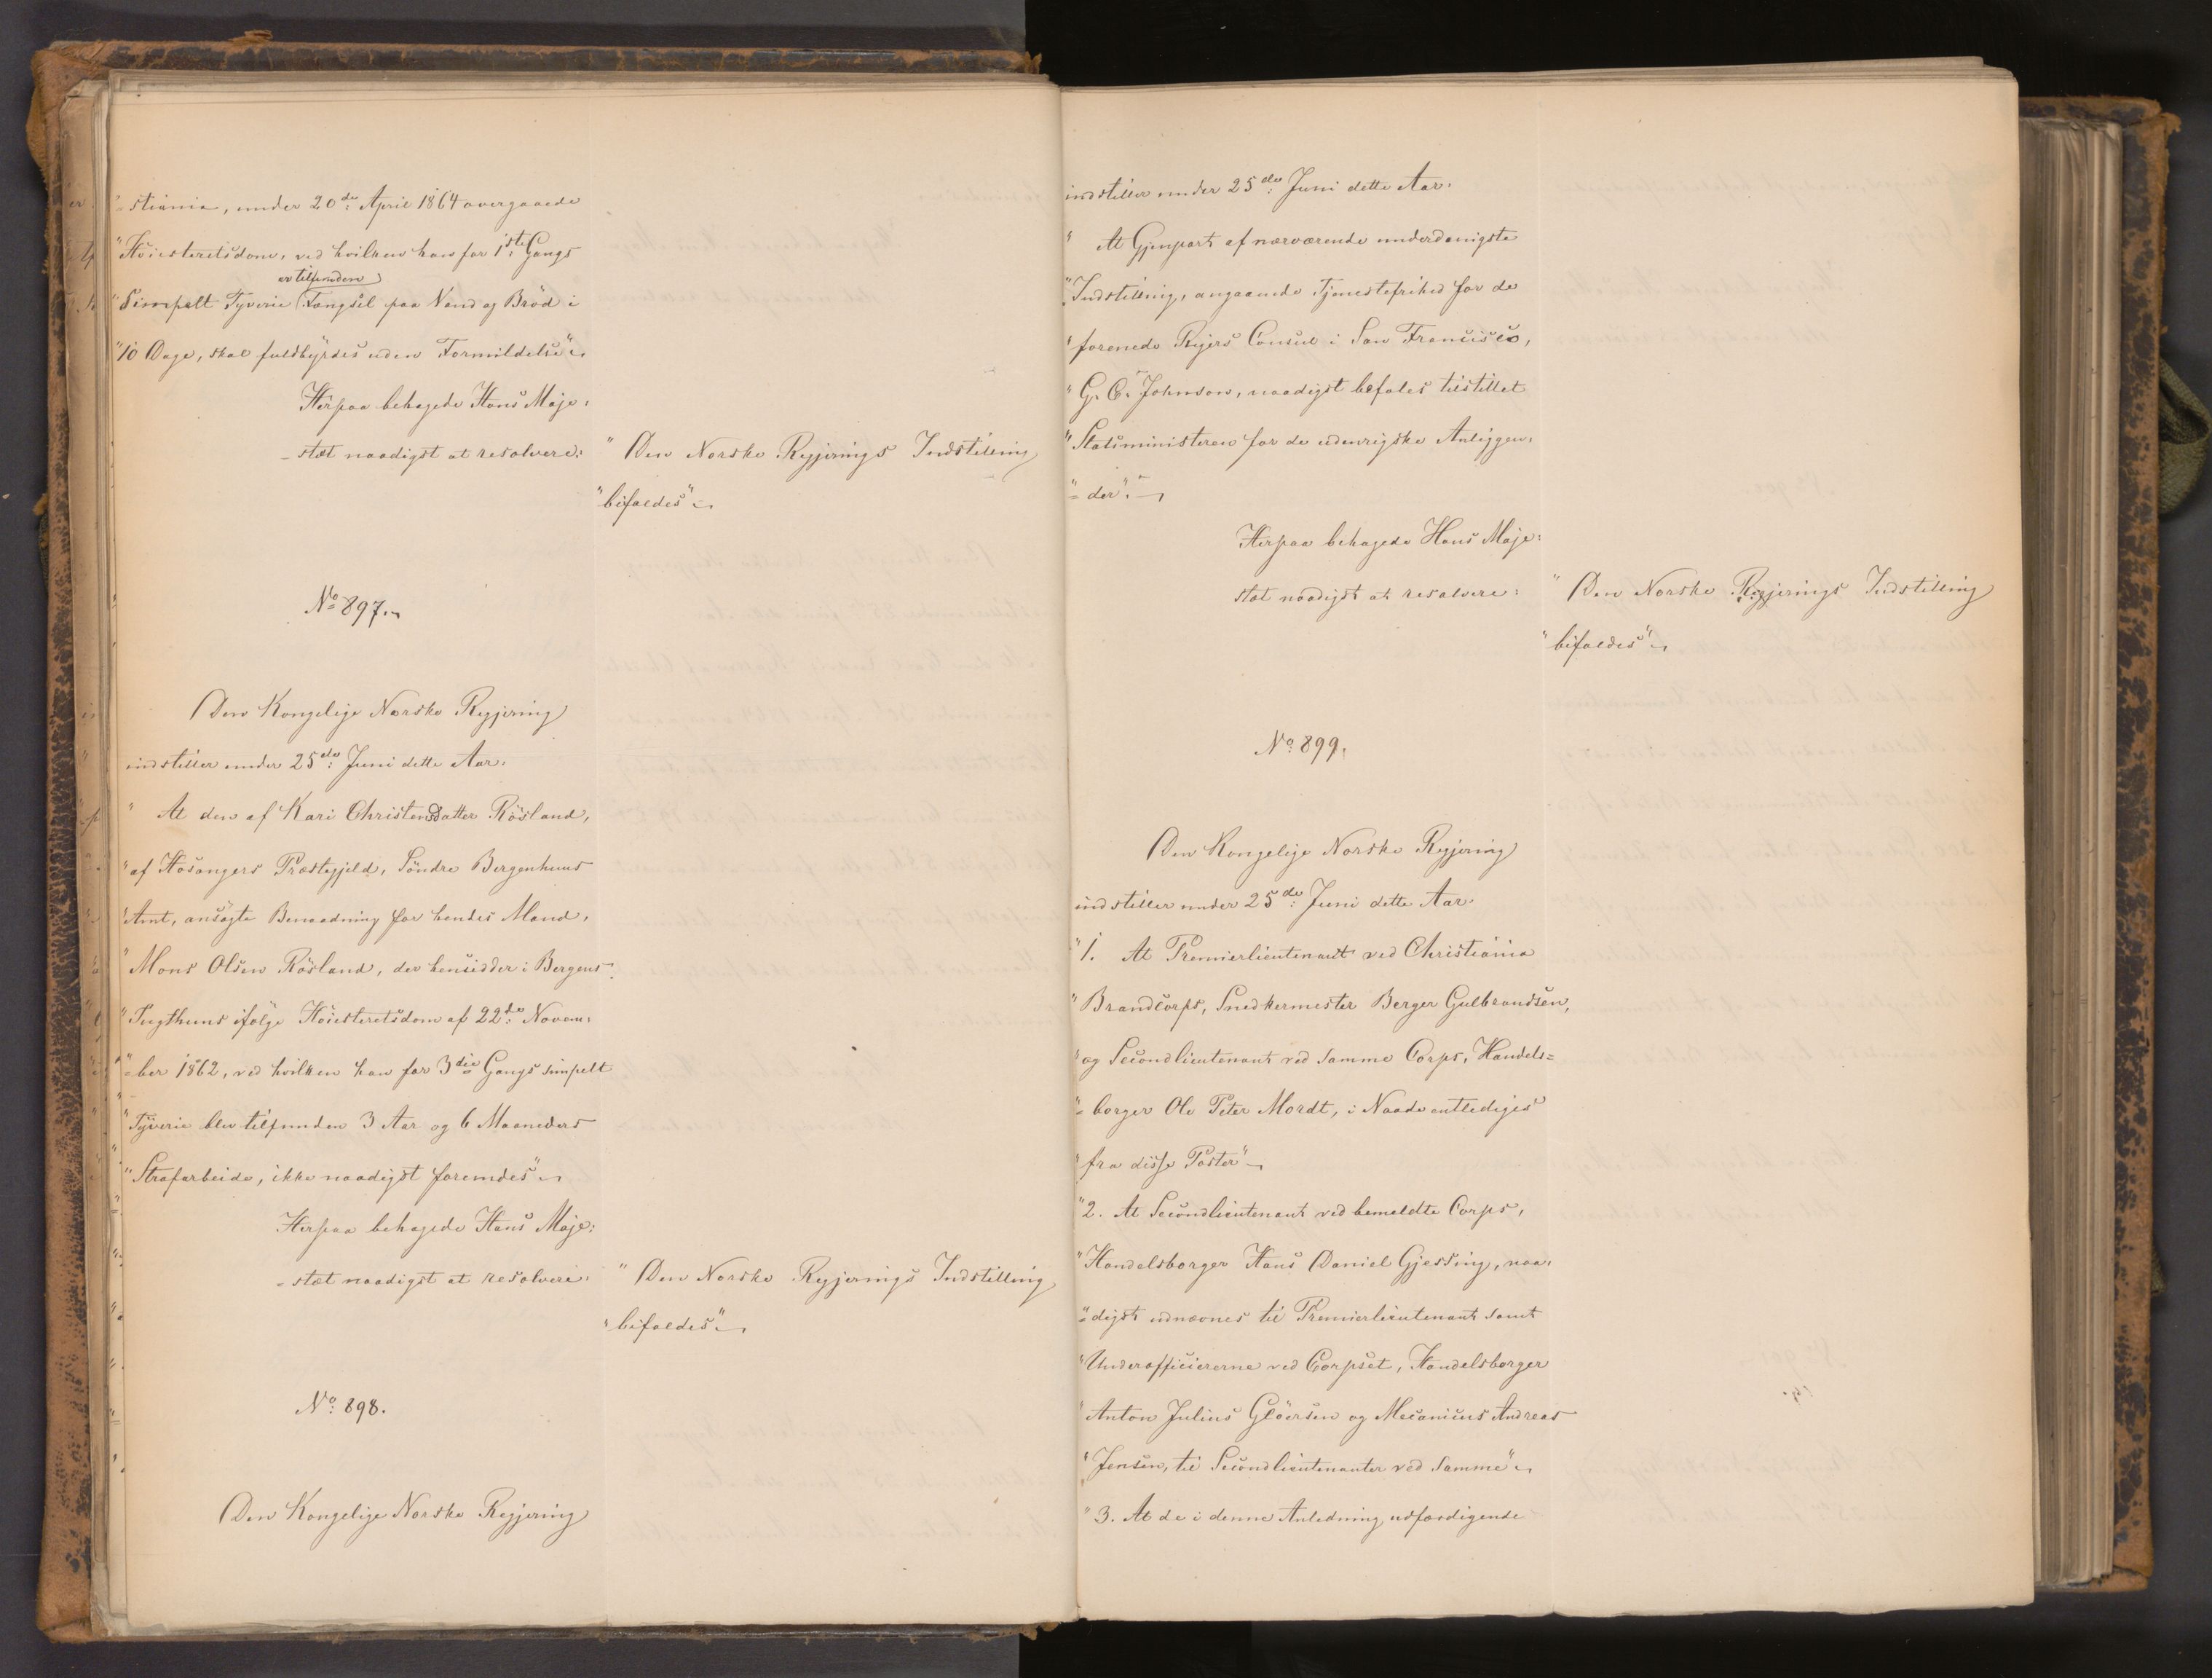 "=stiania, under 20de: April 1864 overgaaede
"Høiesteretsdom, ved hvilken han for 1ste: Gangs
er tilfunden
"Simpelt Tyverie Fængsel paa Vand og Brød i
"10 Dage, skal fuldbyrdes uden Formildelse".
Herpaa behagede Hans Maje=
=stæt naadigst at resolvere:
"Den Norske Regjerings Indstilling
"bifaldes".
No 897.
Den Kongelige Norske Regjering
indstiller under 25de: Juni dette Aar.
" At den af Kari Christensdatter Røsland,
"af Hosangers Præstegjeld, Søndre Bergenhuus
"Amt, ansøgte Benaadning for hendes Mand,
"Mons Olsen Røsland, der hensidder i Bergens
"Tugthuus ifølge Høiesteretsdom af 22de: Novem=
"=ber 1862, ved hvilken han for 3die Gangs simpelt
"Tyverie blev tilfunden 3 Aar og 6 Maaneders
"Strafarbeide, ikke naadigst forundes".
Herpaa behagede Hans Maje=
=stæt naadigst at resolvere:
"Den Norske Regjerings Indstilling
"bifaldes".
No: 898.
Den Kongelige Norske Regjering
indstiller under 25de: Juni dette Aar.
" At Gjenpart af nærværende underdanigste
"Indstilling, angaaende Tjenestefrihed for de
"forenede Rigers Consul i San Francisco,
"G. C. Johnson, naadigst befales tilstillet
"Statsministeren for de udenrigske Anliggen=
"=der".
Herpaa behagede Hans Maje=
stæt naadigst at resolvere:
"Den Norske Regjerings Indstilling
"bifaldes".
No: 899.
Den Kongelige Norske Regjering
indstiller under 25de: Juni dette Aar.
"1. At Premierlieutenant ved Christiania
"Brandcorps, Snedkermester Berger Gulbrandsen,
"og Secondlieutenant ved samme Corps, Handels=
"=borger Ole Peter Mordt, i Naade entlediges
"fra disse Poster".
"2. At Secondlieutenant ved bemeldte Corps,
"Handelsborger Hans Daniel Gjessing, naa=
"=digst udnævnes til Premierlieutenant samt
"Underofficiererne ved Corpset, Handelsborger
"Anton Julius Gløersen og Mecanicus Andreas
"Jensen, til Secondlieutenanter ved Samme".
"3. At de i denne Anledning udfærdigende